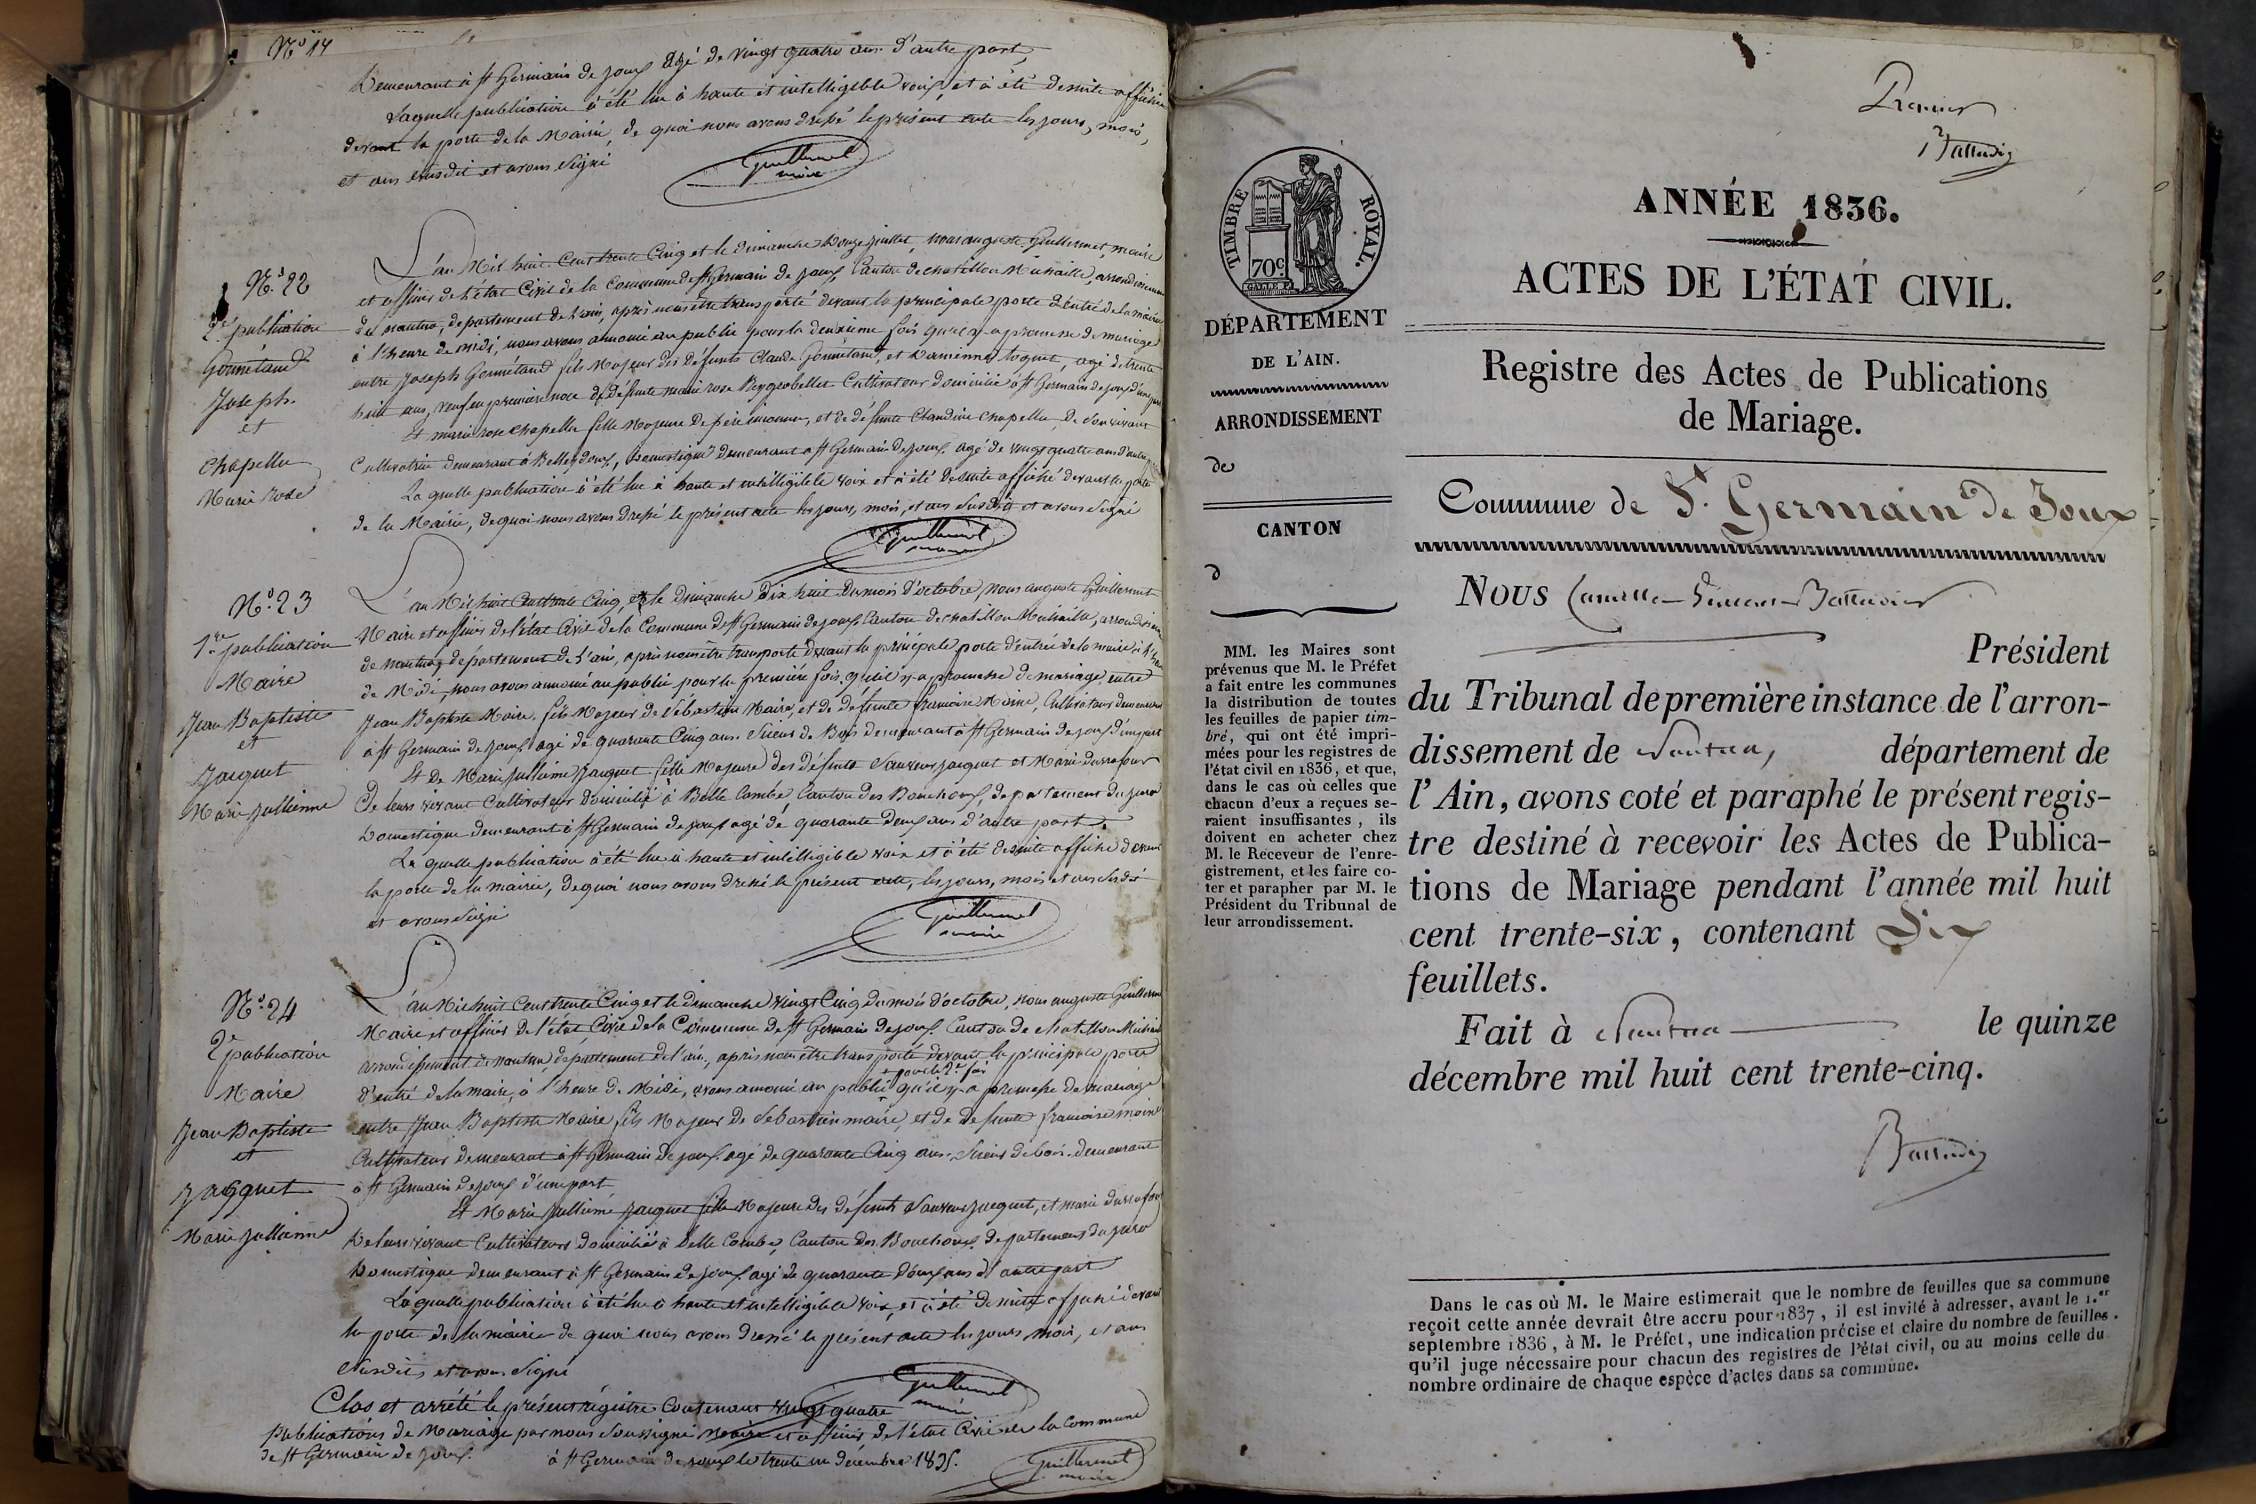 N.º 14
Demeurant à St Germain de joux agé de vingt quatre ans d'autre part,
Laquelle publication à été lue à haute et intelligible voix, et à été de suite affichée
devant la porte de la Mairie, de quoi nous avons dressé le présent acte les jours, mois,
et ans susdit et avons signé
Guillermet
maire
N.º 22
2.e publication
Gonnétand
Joseph.
et
Chapellu
Marie rose
L'an Mil huit Cent trente Cinq et le dimanche Douze juillet, nous auguste Guillermet, maire
et officier de l'état Civil de la Commune de St Germain de joux, Canton de chatillon Michaille, arrondissement
de nantua, département de l'ain, après nous être transporté devant la principale porte d'entré de la mairie
à l'heure de midi, nous avons annoncé au public pour la deuxième fois qu'il y a promesse de mariage
entre Joseph Gonnétand fils Majeur des défunts Claude Gonnétand, et agé de trente
huit ans, veuf en première noce de défunte marie rose Cultivateur domicilié à St Germain de joux d'une part
Et marie rose chapellu fille Majeure de père inconnu, et de défunte Claudine chapellu, de son vivant
Cultivatrice demeurant à Belleydoux, Domestique demeurant à St Germain de joux agé de vingt quatre ans d'autre part
La quelle publication à été lue à haute et intelligible voix et à été de suite affiché devant la porte
de la Mairie, de quoi nous avons Dressé le présent acte les jours, mois, et ans susdits et avons signé
Guillermet
maire
N.º 23
1.re publication
Maire
Jean Baptiste
et
Jacquet
Marie jullienne
L'an Mil huit Cent trente Cinq, et le dimanche Dix huit du mois d'octobre, nous auguste Guillermet
Maire et officier de l'état Civil de la Commune de St Germain de joux Canton de chatillon Michaille, arrondissement
de nantua département de l'ain, après nous être transporté devant la principale porte d'entrée de la mairie à l'heure
de Midi, nous avons annoncé au public pour la première fois qu'il y a promesse de mariage entre
Jean Baptiste Maire fils Majeur de Sébastien Maire, et de défunte françoise Moine, Cultivateur demeurant
à St Germain de joux agé de quarante Cinq ans. Scieur de Bois demeurant à St Germain de joux d'une part
Et De Marie Jullienne Jacquet fille Majeure des défunts Jacquet et Marie
De leurs vivant Cultivateurs Domicilié à Belle Combe, Canton des Bouchoux, département du jura
Domestique demeurant à St Germain de joux agé de quarante Deux ans d'autre part.
La quelle publication à été lue à haute et intelligible voix et à été de suite affiché devant
la porte de la mairie, de quoi nous avons dressé le présent acte, les jours, mois et ans susdit
et avons signé
Guillermet
maire
N.º 24
2.e publication
Maire
Jean Baptiste
et
Jacquet
Marie jullienne
L'an Mil huit Cent trente Cinq et le dimanche vingt Cinq du mois d'octobre, nous auguste Guillermet
Maire et officier de l'état Civil de la Commune de St Germain de joux Canton de chatillon Michaille
arrondissement de nantua, département de l'ain, après nous être transporté devant la principale porte
pour la 2.e fois
d'entré de la mairie, à l'heure de Midi, avons annoncé au public qu'il y a promesse de mariage
entre Jean Baptiste Maire fils Majeur de Sébastien maire, et de défunte françoise moine
Cultivateur demeurant à St Germain de joux agé de quarante Cinq ans. Scieur de bois demeurant
à St Germain de joux d'une part
Et Marie Jullienne Jacquet fille Majeure des défunts Jacquet, et marie
De leurs vivant Cultivateurs Domicilié à Belle Combe, Canton des Bouchoux département du jura
Domestique demeurant à St Germain de joux agé de quarante Deux ans d'autre part
La quelle publication à été lue à haute et intelligible voix, et à été de suite affiché devant
la porte de la mairie de quoi nous avons dressé le présent acte les jours mois, et ans
susdits et avons signé
Guillermet
maire
Clos et arrété le présent régistre Contenant vingt quatre
publications de Mariage par nous soussigné Maire et officier de l'état Civil de la Commune
de St Germain de joux. à St Germain de joux le trente un décembre 1835.
Guillermet
maire
Premier
TIMBRE ROYAL.
70c
ANNÉE 1836.
ACTES DE L'ÉTAT CIVIL.
DÉPARTEMENT
DE L'AIN.
ARRONDISSEMENT
de
CANTON
d
Registre des Actes de Publications
de Mariage.
Commune de St. Germain de Joux
MM. les Maires sont
prévenus que M. le Préfet
a fait entre les communes
la distribution de toutes
les feuilles de papier tim-
bré, qui ont été impri-
mées pour les registres de
l'état civil en 1836, et que,
dans le cas où celles que
chacun d'eux a reçues se-
raient insuffisantes, ils
doivent en acheter chez
M. le Receveur de l'enre-
gistrement, et les faire co-
ter et parapher par M. le
Président du Tribunal de
leur arrondissement.
Nous Camille
Président
du Tribunal de première instance de l'arron-
dissement de Nantua, département de
l'Ain, avons coté et paraphé le présent regis-
tre destiné à recevoir les Actes de Publica-
tions de Mariage pendant l'année mil huit
cent trente-six, contenant Dix
feuillets.
Fait à Nantua le quinze
décembre mil huit cent trente-cinq.
Dans le cas où M. le Maire estimerait que le nombre de feuilles que sa commune
reçoit cette année devrait être accru pour 1837, il est invité à adresser, avant le 1.er
septembre 1836, à M. le Préfet, une indication précise et claire du nombre de feuilles
qu'il juge nécessaire pour chacun des registres de l'état civil, ou au moins celle du
nombre ordinaire de chaque espèce d'actes dans sa commune.